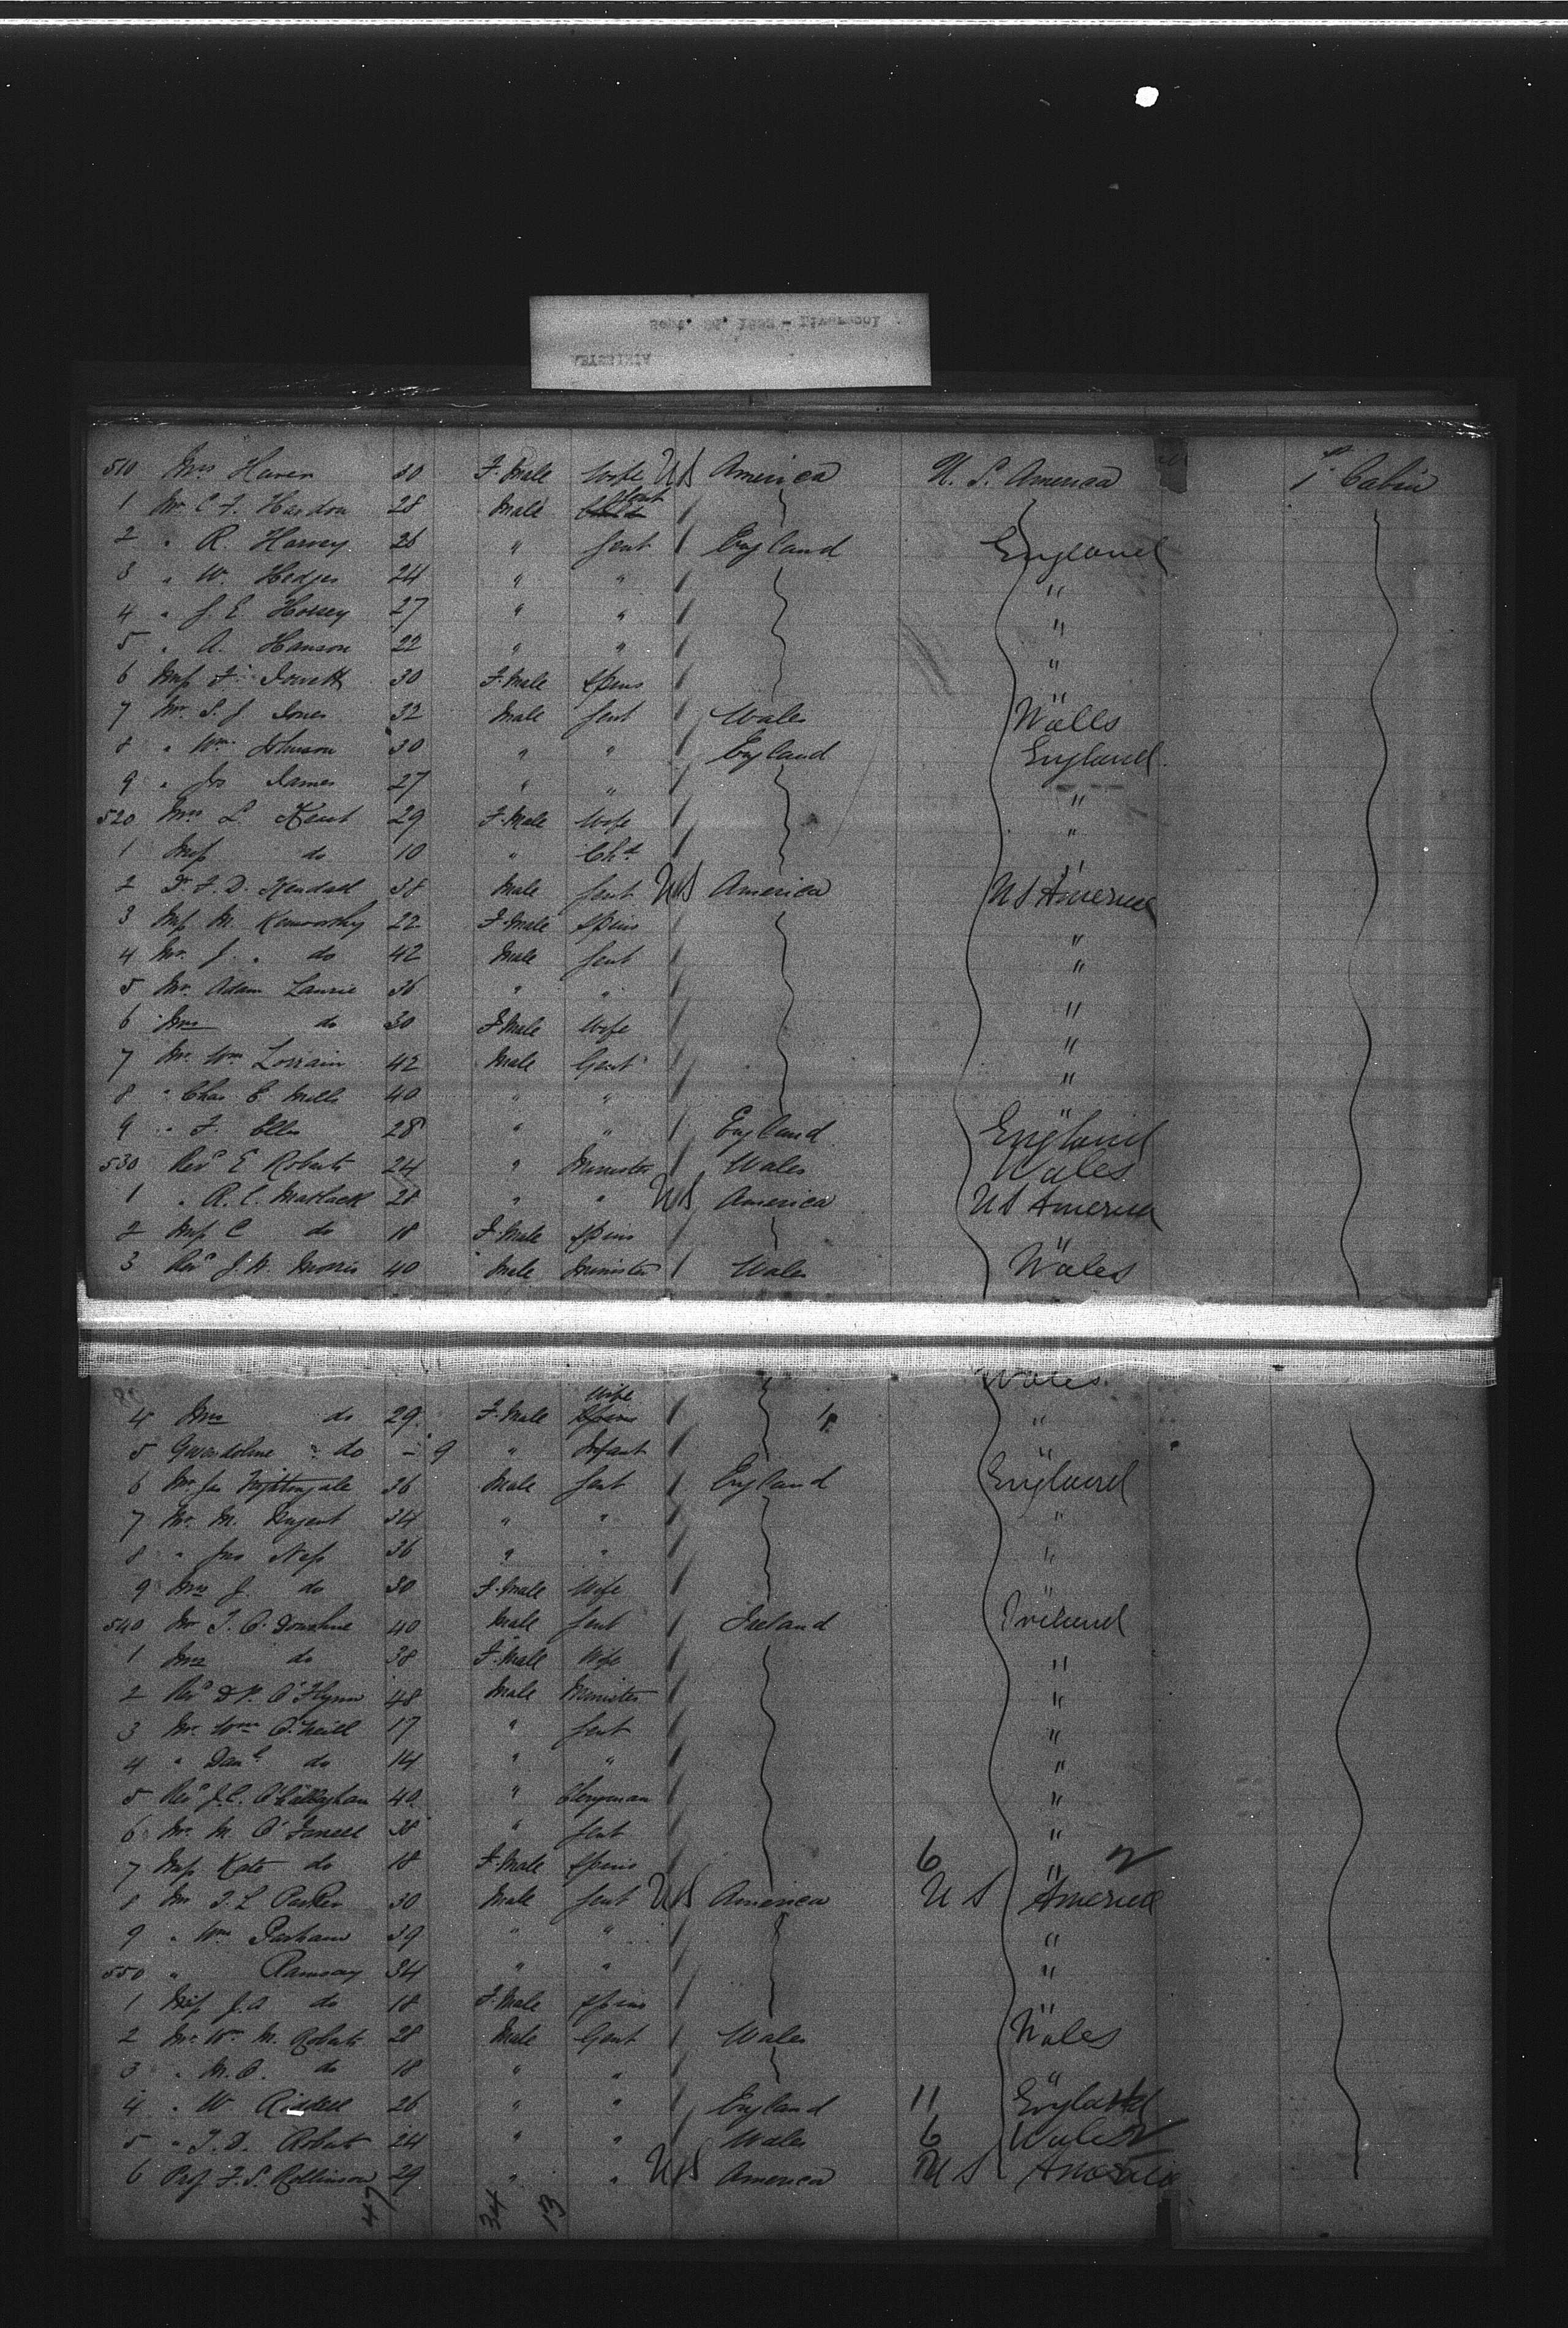 510 Mrs Haven 30 F. Male Wife US America U. S. America 1st Cabin
1 Mr C F. Hardon 28 Male Gent
2 " R. Harvey 26 " Gent / England England
3 " W. Hedges 24 " " "
4 " J. E. Horsey 27 " " "
5 " A. Hanson 22 " " "
6 Miss F. 30 F. Male Spins "
7 Mr. S. J. Jones 32 Male Gent / Wales Walls
8 " Wm Johnson 30 " " / England England
9 " Jos James 27 " " "
520 Mrs L. Kent 29 F. Male Wife "
1 Miss do 10 " Chd "
2 Dr. F. D. Kendall 38 Male Gent US America US America
3 Miss M. Kenworthy 22 F. Male Spins "
4 Mr. J. " do 42 Male Gent "
5 Mr. Adam Laurie 36 " " "
6 Mrs do 30 F. Male Wife "
7 Mr. Wm Lorrain 42 Male Gent "
8 " Chas E. Mills 40 " " "
9 " F. 28 " " / England England
530 Revd E Roberts 24 " Minister / Wales Wales
1 " R. C. Matlack 28 " " US America US America
2 Miss C do 18 F. Male Spins "
3 Revd J. W. Morris 40 Male Minister / Wales Wales
Wales
4 Mrs do 29 F. Male Wife "
5 Gwendoline " do - 9 " Infant "
6 Mr. Jas Nightingale 36 Male Gent England England
7 Mr. M. Nugent 34 " " "
8 " Jno Ness 36 " " "
9 Mrs J. do 30 F. Male Wife "
540 Mr T. O'Donohue 40 Male Gent Ireland Ireland
1 Mrs do 38 F. Male Wife "
2 Revd D P. O'Flynn 48 Male Minister "
3 Mr. Wm O'Neill 17 " Gent "
4 " Danl do 14 " " "
5 Revd J. C. O'Callaghan 40 " Clergyman "
6 Mr. M. O'Farrell 38 " Gent "
7 Miss Kate do 18 F. Male Spins 6 "
8 Mr T. L Parker 30 Male Gent US America US America
9 " Wm Parham 39 " " "
550 " Ramsay 34 " " "
1 Miss J. A do 18 F. Male Spins "
2 Mr. Wm M. Roberts 28 Male Gent / Wales Wales
3 " M. O. do 18 " " "
4 " W 26 " " England 11 England
5 " T. D. Roberts 24 " " Wales 6 Wales
6 Prof. F. S. Rollinson 29 " " US America US America
47 34 13